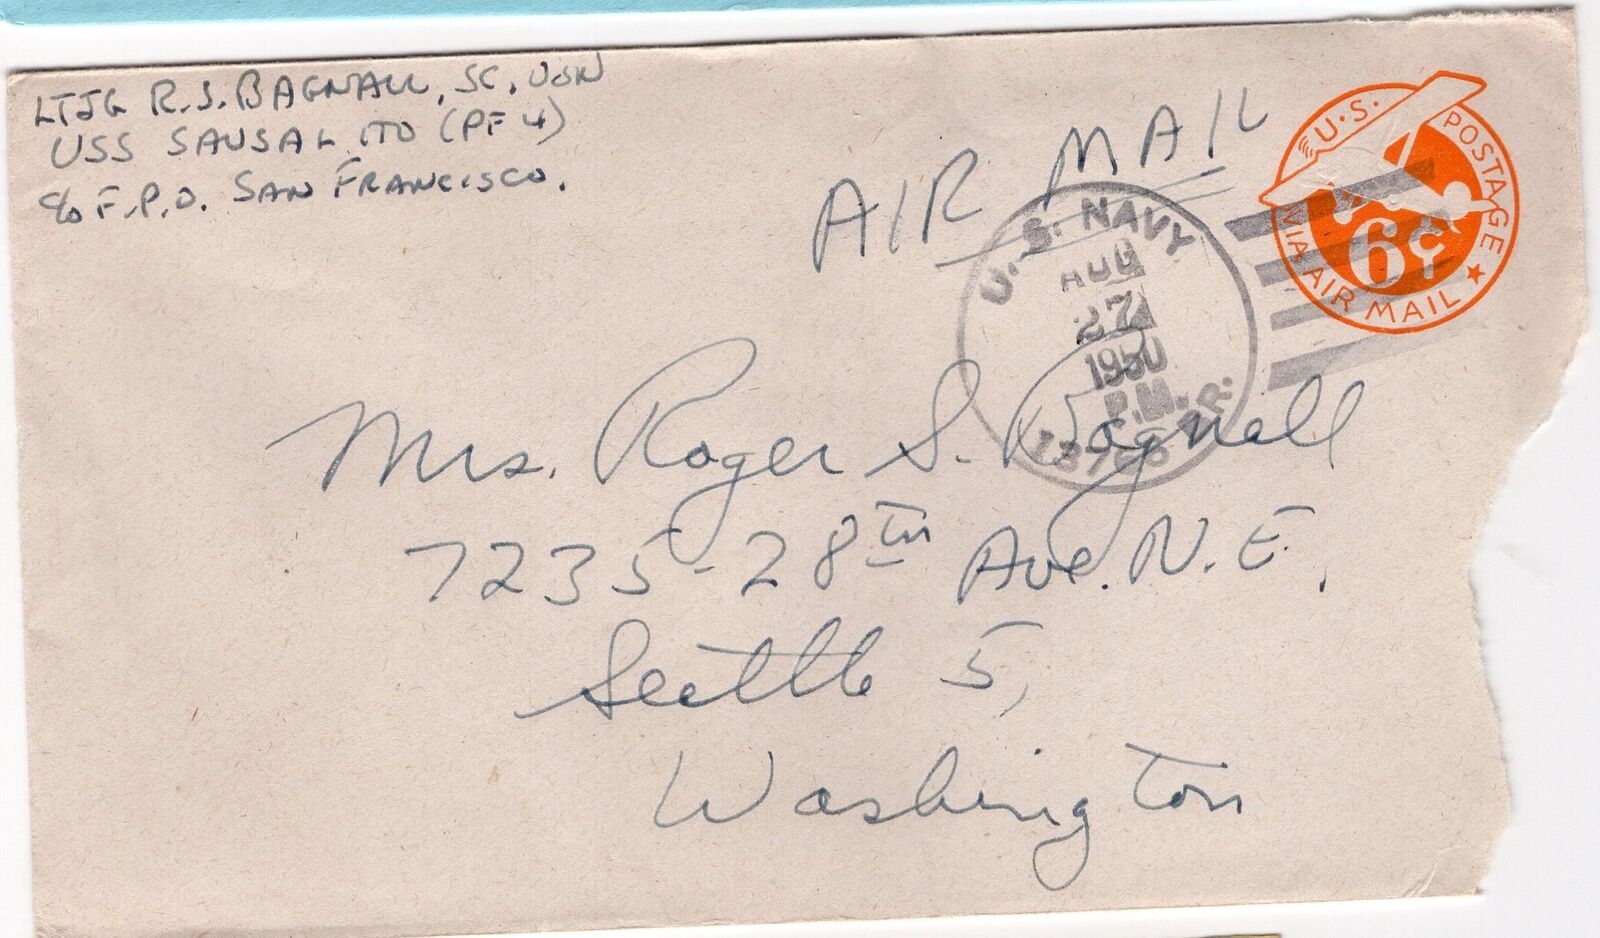 LTJG R.S. BAGNALL, SC, USN
USS SAUSALITO (PF 4)
c/o F.P.O. SAN FRANCISCO.
AIR MAIL
U.S. POSTAGE
6¢
VIA AIR MAIL
U.S. NAVY
AUG
27
1950
P.M.
BR.
Mrs. Roger S. Bagnall
7235-28th Ave. N.E.
Seattle 5,
Washington